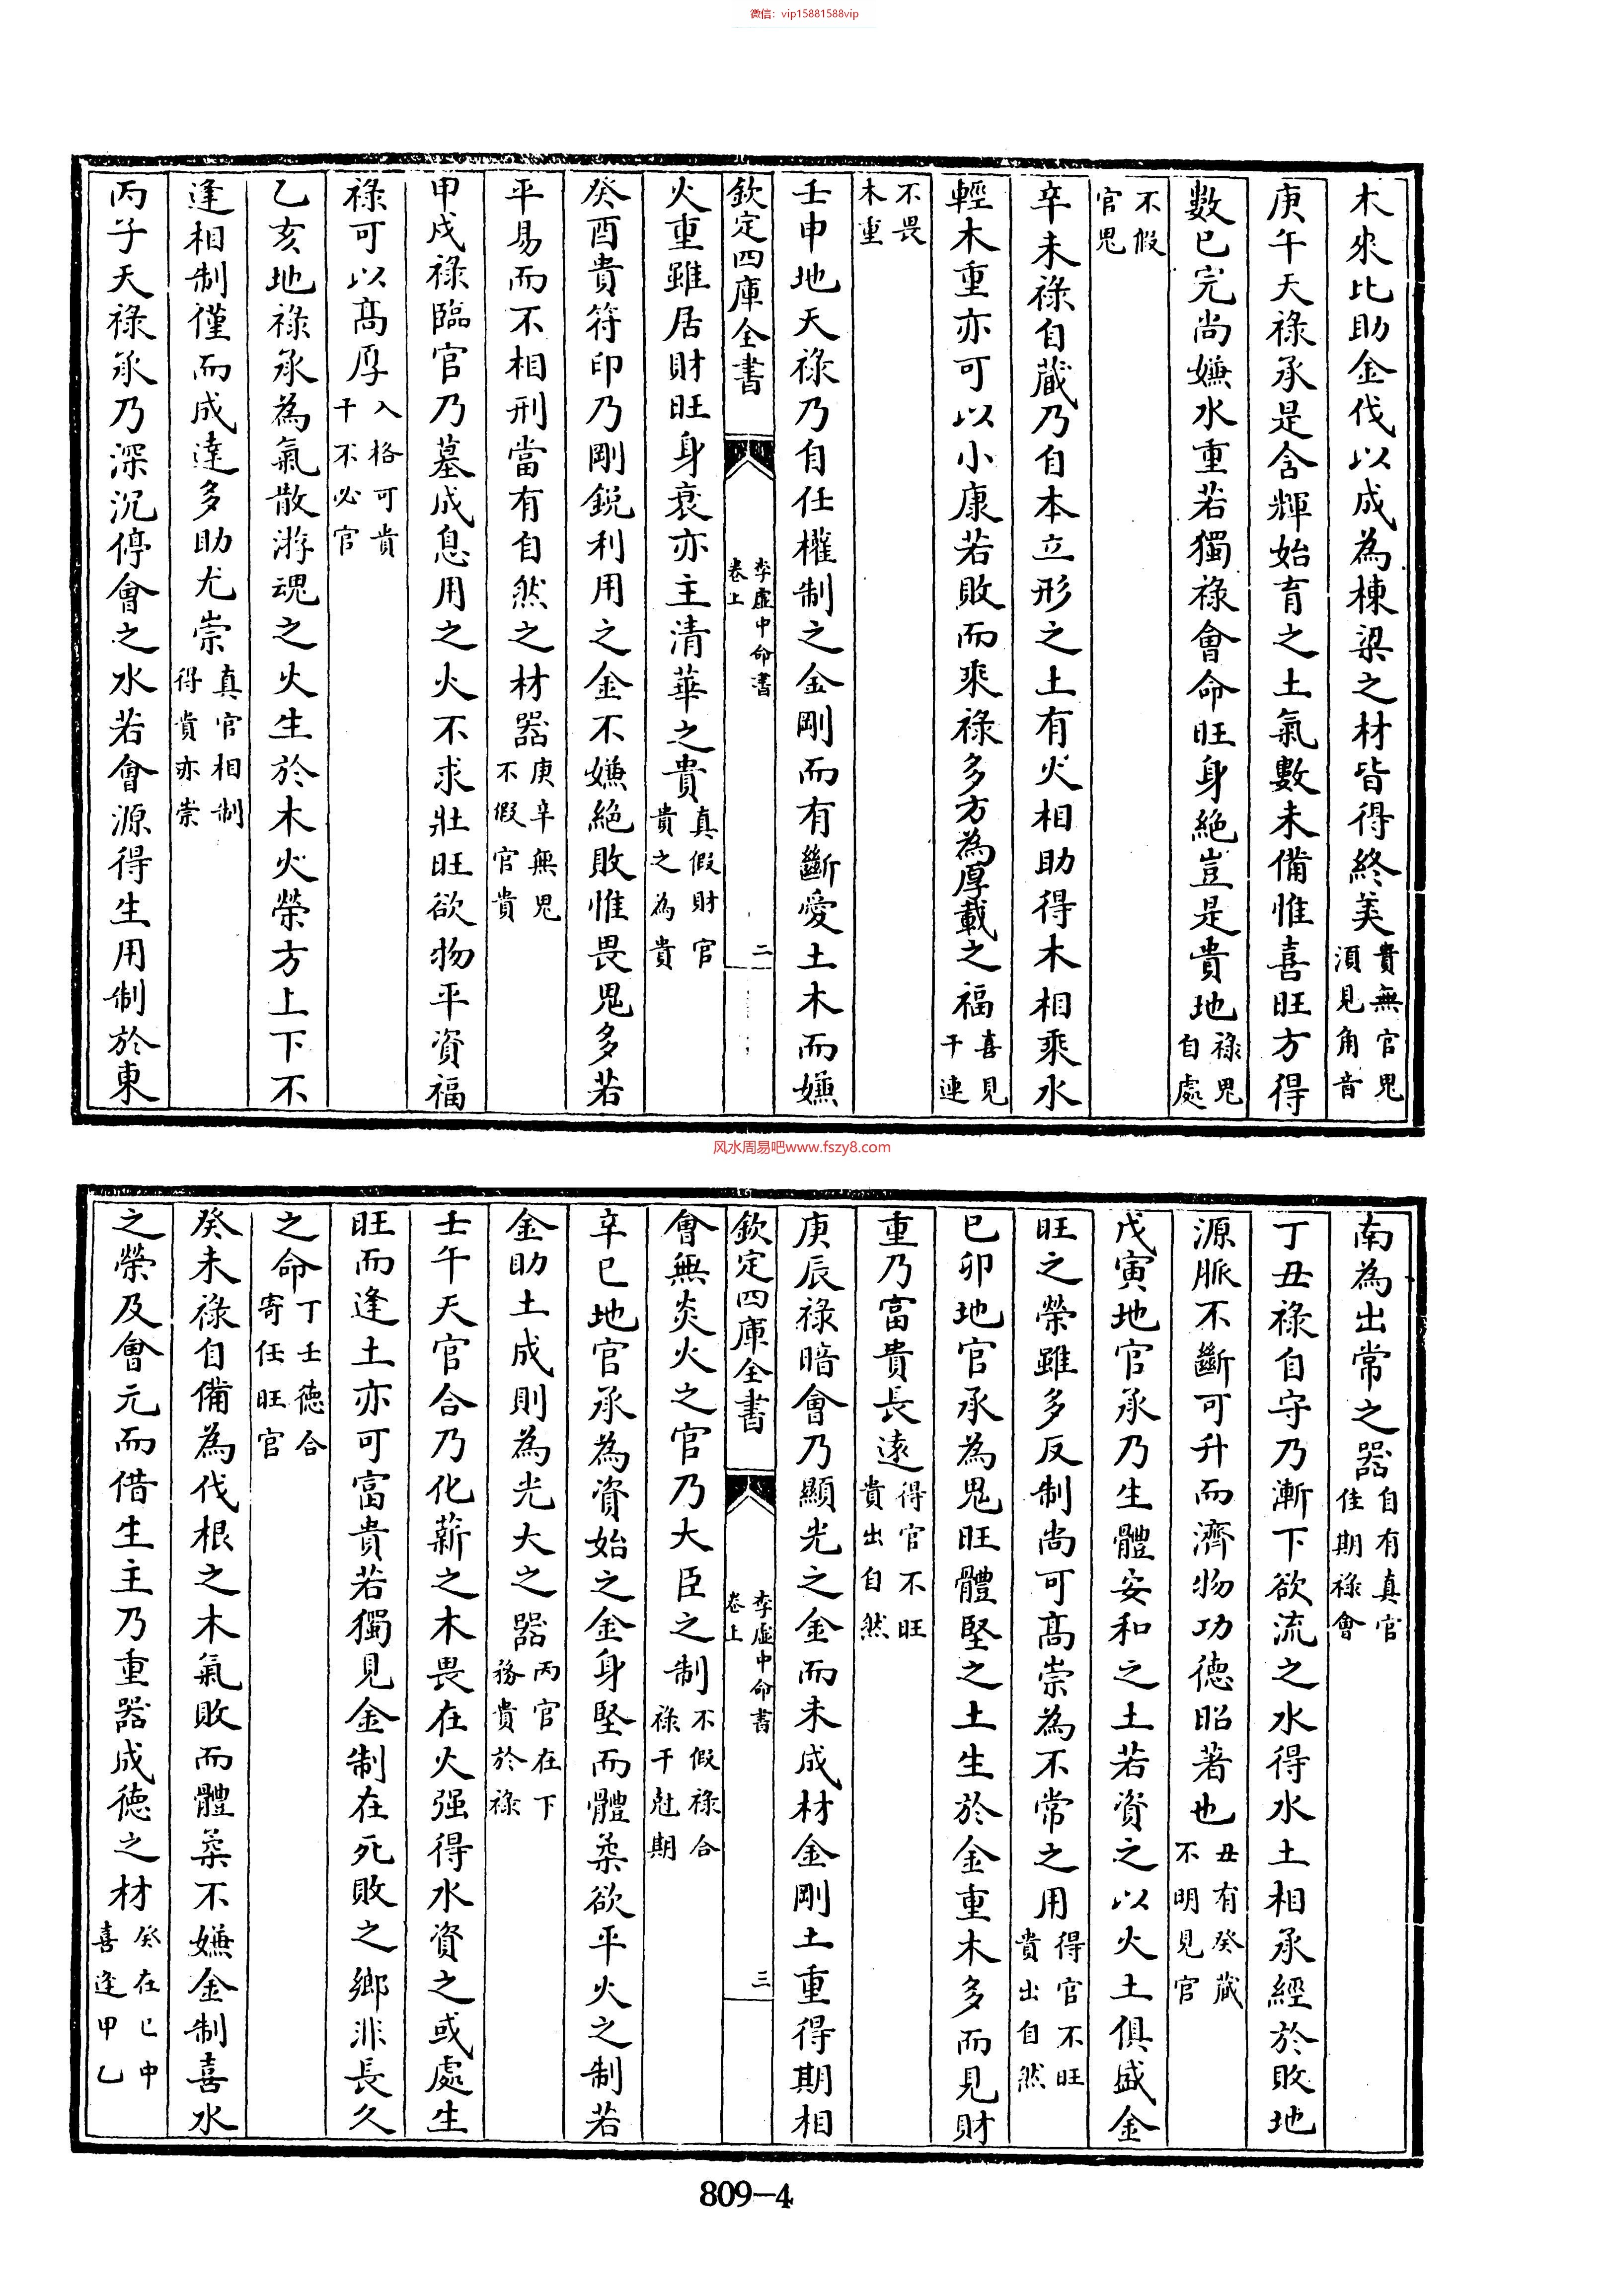 微信：vip15881588vip
木來比助金伐以成為棟梁之材皆得終美貴無官鬼須見角音
庚午天祿承是含輝始育之土氣數未備惟喜旺方得
數已完尚嫌水重若獨祿會命旺身絕豈是貴地祿鬼自處
不假官鬼
辛未祿自藏乃自本立形之土有火相助得木相乘水
輕木重亦可以小康若敗而乘祿多方為厚載之福喜見干連
不畏木重
壬申地天祿乃自任權制之金剛而有斷愛土木而嫌
欽定四庫全書
李虛中命書
卷上
二
火重雖居財旺身衰亦主清華之貴真假財官貴之為貴
癸酉貴符印乃剛銳利用之金不嫌絕敗惟畏鬼多若
平易而不相刑當有自然之材器庚辛無鬼不假官貴
甲戌祿臨官乃墓成息用之火不求壯旺欲物平資福
祿可以高厚入格可貴干不必官
乙亥地祿承為氣散游魂之火生於木火榮方上下不
逢相制僅而成達多助尤崇真官相制得貴亦崇
丙子天祿承乃深沉停會之水若會源得生用制於東
风水周易吧www.fszy8.com
南為出常之器自有真官佳期祿會
丁丑祿自守乃漸下欲流之水得水土相承經於敗地
源脈不斷可升而濟物功德昭著也丑有癸藏不明見官
戊寅地官承乃生體安和之土若資之以火土俱盛金
旺之榮雖多反制尚可高崇為不常之用得官不旺貴出自然
已卯地官承為鬼旺體堅之土生於金重木多而見財
重乃富貴長遠得官不旺貴出自然
庚辰祿暗會乃顯光之金而未成材金剛土重得期相
欽定四庫全書
李虛中命書
卷上
三
會無炎火之官乃大臣之制不假祿合祿干尅期
辛巳地官承為資始之金身堅而體柔欲平火之制若
金助土成則為光大之器丙官在下務貴於祿
壬午天官合乃化薪之木畏在火强得水資之或處生
旺而逢土亦可富貴若獨見金制在死敗之鄉非長久
之命丁壬德合寄任旺官
癸未祿自備為伐根之木氣敗而體柔不嫌金制喜水
之榮及會元而借生主乃重器成德之材癸在已中喜逢甲乙
809-4